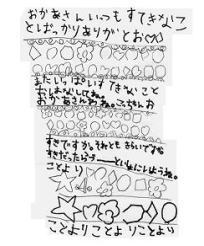 おかあさんいつもすてきなこ
とばっかりありがとお
またいっぱいすてきなこと
おしえなしてね。
おかあさんわね。こともしお
すきですか。それともきらいですか
すきだったら いっしょにしようね。
ことより
ことよりことよりことより